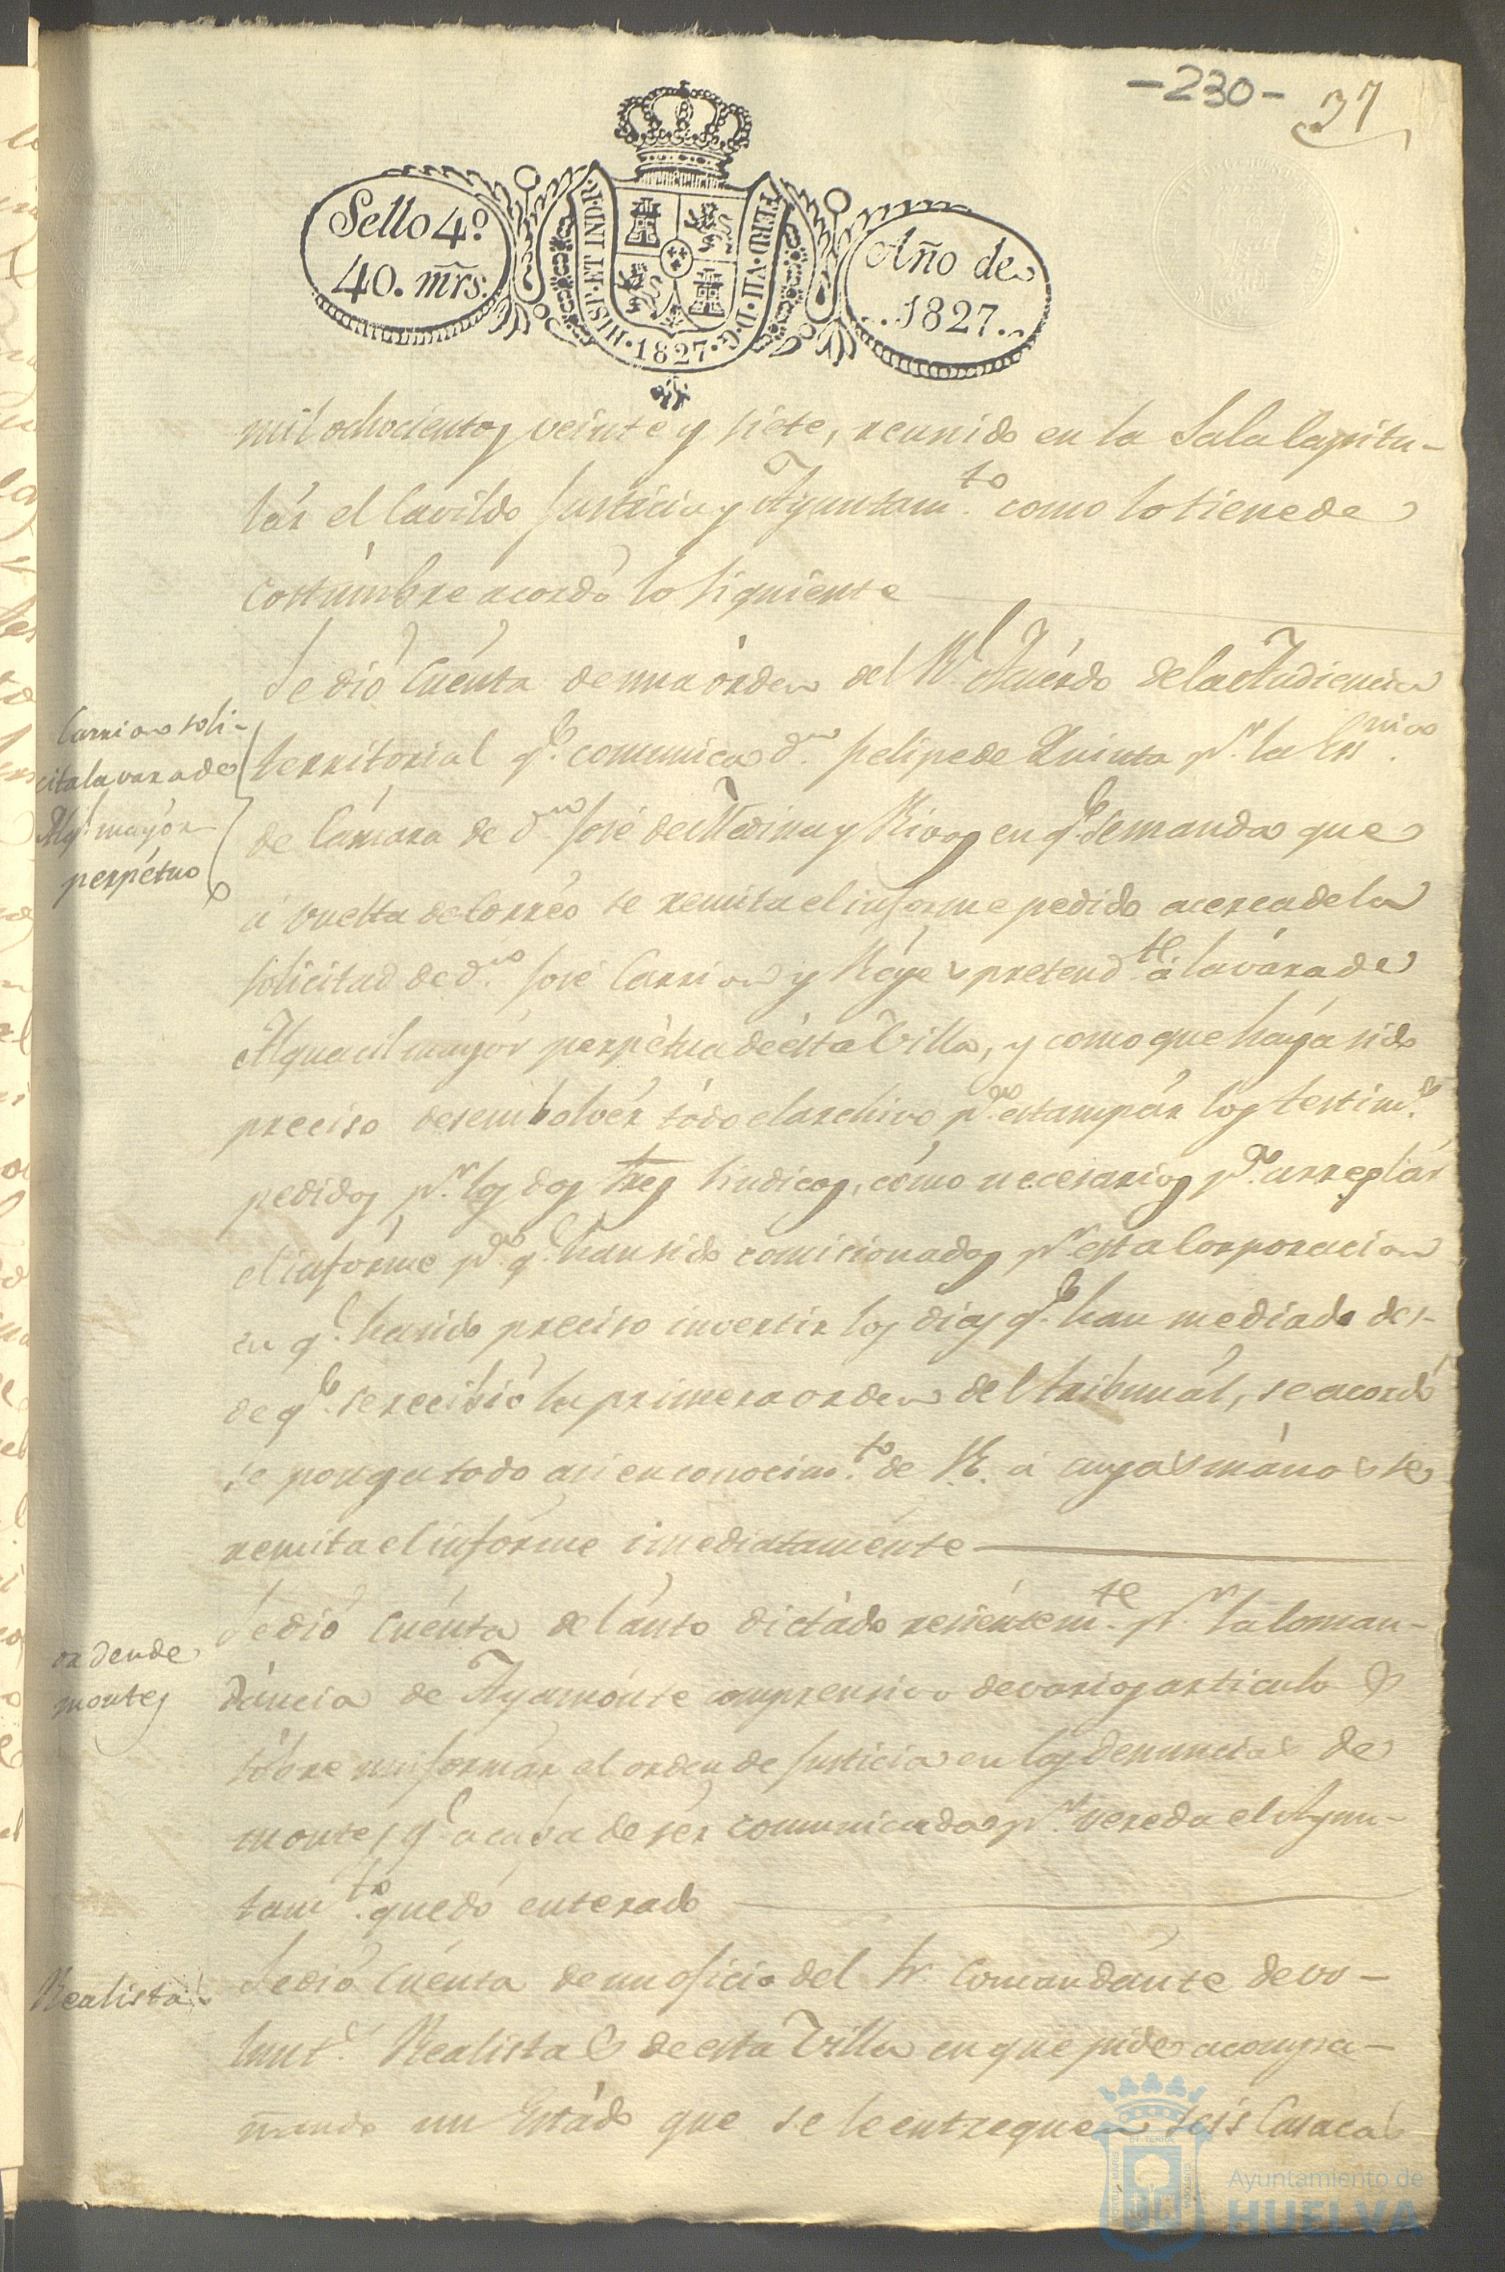 -230- 37
Sello 4º.
40. mrs.
HISP. ET IND. R.
FERD. VII. D. G.
.1827.
Año de
..1827..
mil ochocientos veinte y siete, reunido en la Sala Capitu-
lár el Cavildo Justicia y Ayuntam.to como lo tiene de
costúmbre acordó lo siguiente
Se dió Cuénta de una órden del Rl. Acuérdo de la Audiencia
Carrion soli-
cita la vara de
Algl. mayór
perpétuo
territorial q.e comunica d.n Felipe de Quinta p.r la Ess.nia
de Cámara de d.n José de Medina y Rivas en q.e se manda que
á vuelta de Corréo se remita el informe pedido acerca de la
solicitud de d.n José Carrion y Réyes pretend.te á la vára de
Alguacil mayór perpétua de ésta Villa, y como que háya sido
preciso desembolvér tódo el archivo p.a estampár los testim.s
pedidos p.r los dos Sres Sindicos, cómo necesarios p.a arreglár
el infórme p.a q.e han sido comisionados p.r esta Corporacion
en q.e ha sido preciso invertir los dias q.e han mediado des-
de q.e se recibió la primera orden del tribunál, se acordó
se ponga todo asi en conocim.to de R. á cuyas mános se
remita el infórme imediatamente
Se dió Cuénta del áuto dictádo reciéntem.te p.r la Coman-
orden de
montes
dáncia de Ayamónte comprensivo de varios articulos
sóbre uniformár el orden de Justicia en las denuncias de
montes q.e acába de sér comunicada p.r vereda el Ayun-
tam.to quedó enterado
Realistas
Se dió Cuénta de un oficio del Sr. Comandánte de vo-
lunt.s Realistas de esta Villa en que pide acompa-
ñando un Estádo que se le entreguen seis Casacas
Ayuntamiento de
HUELVA